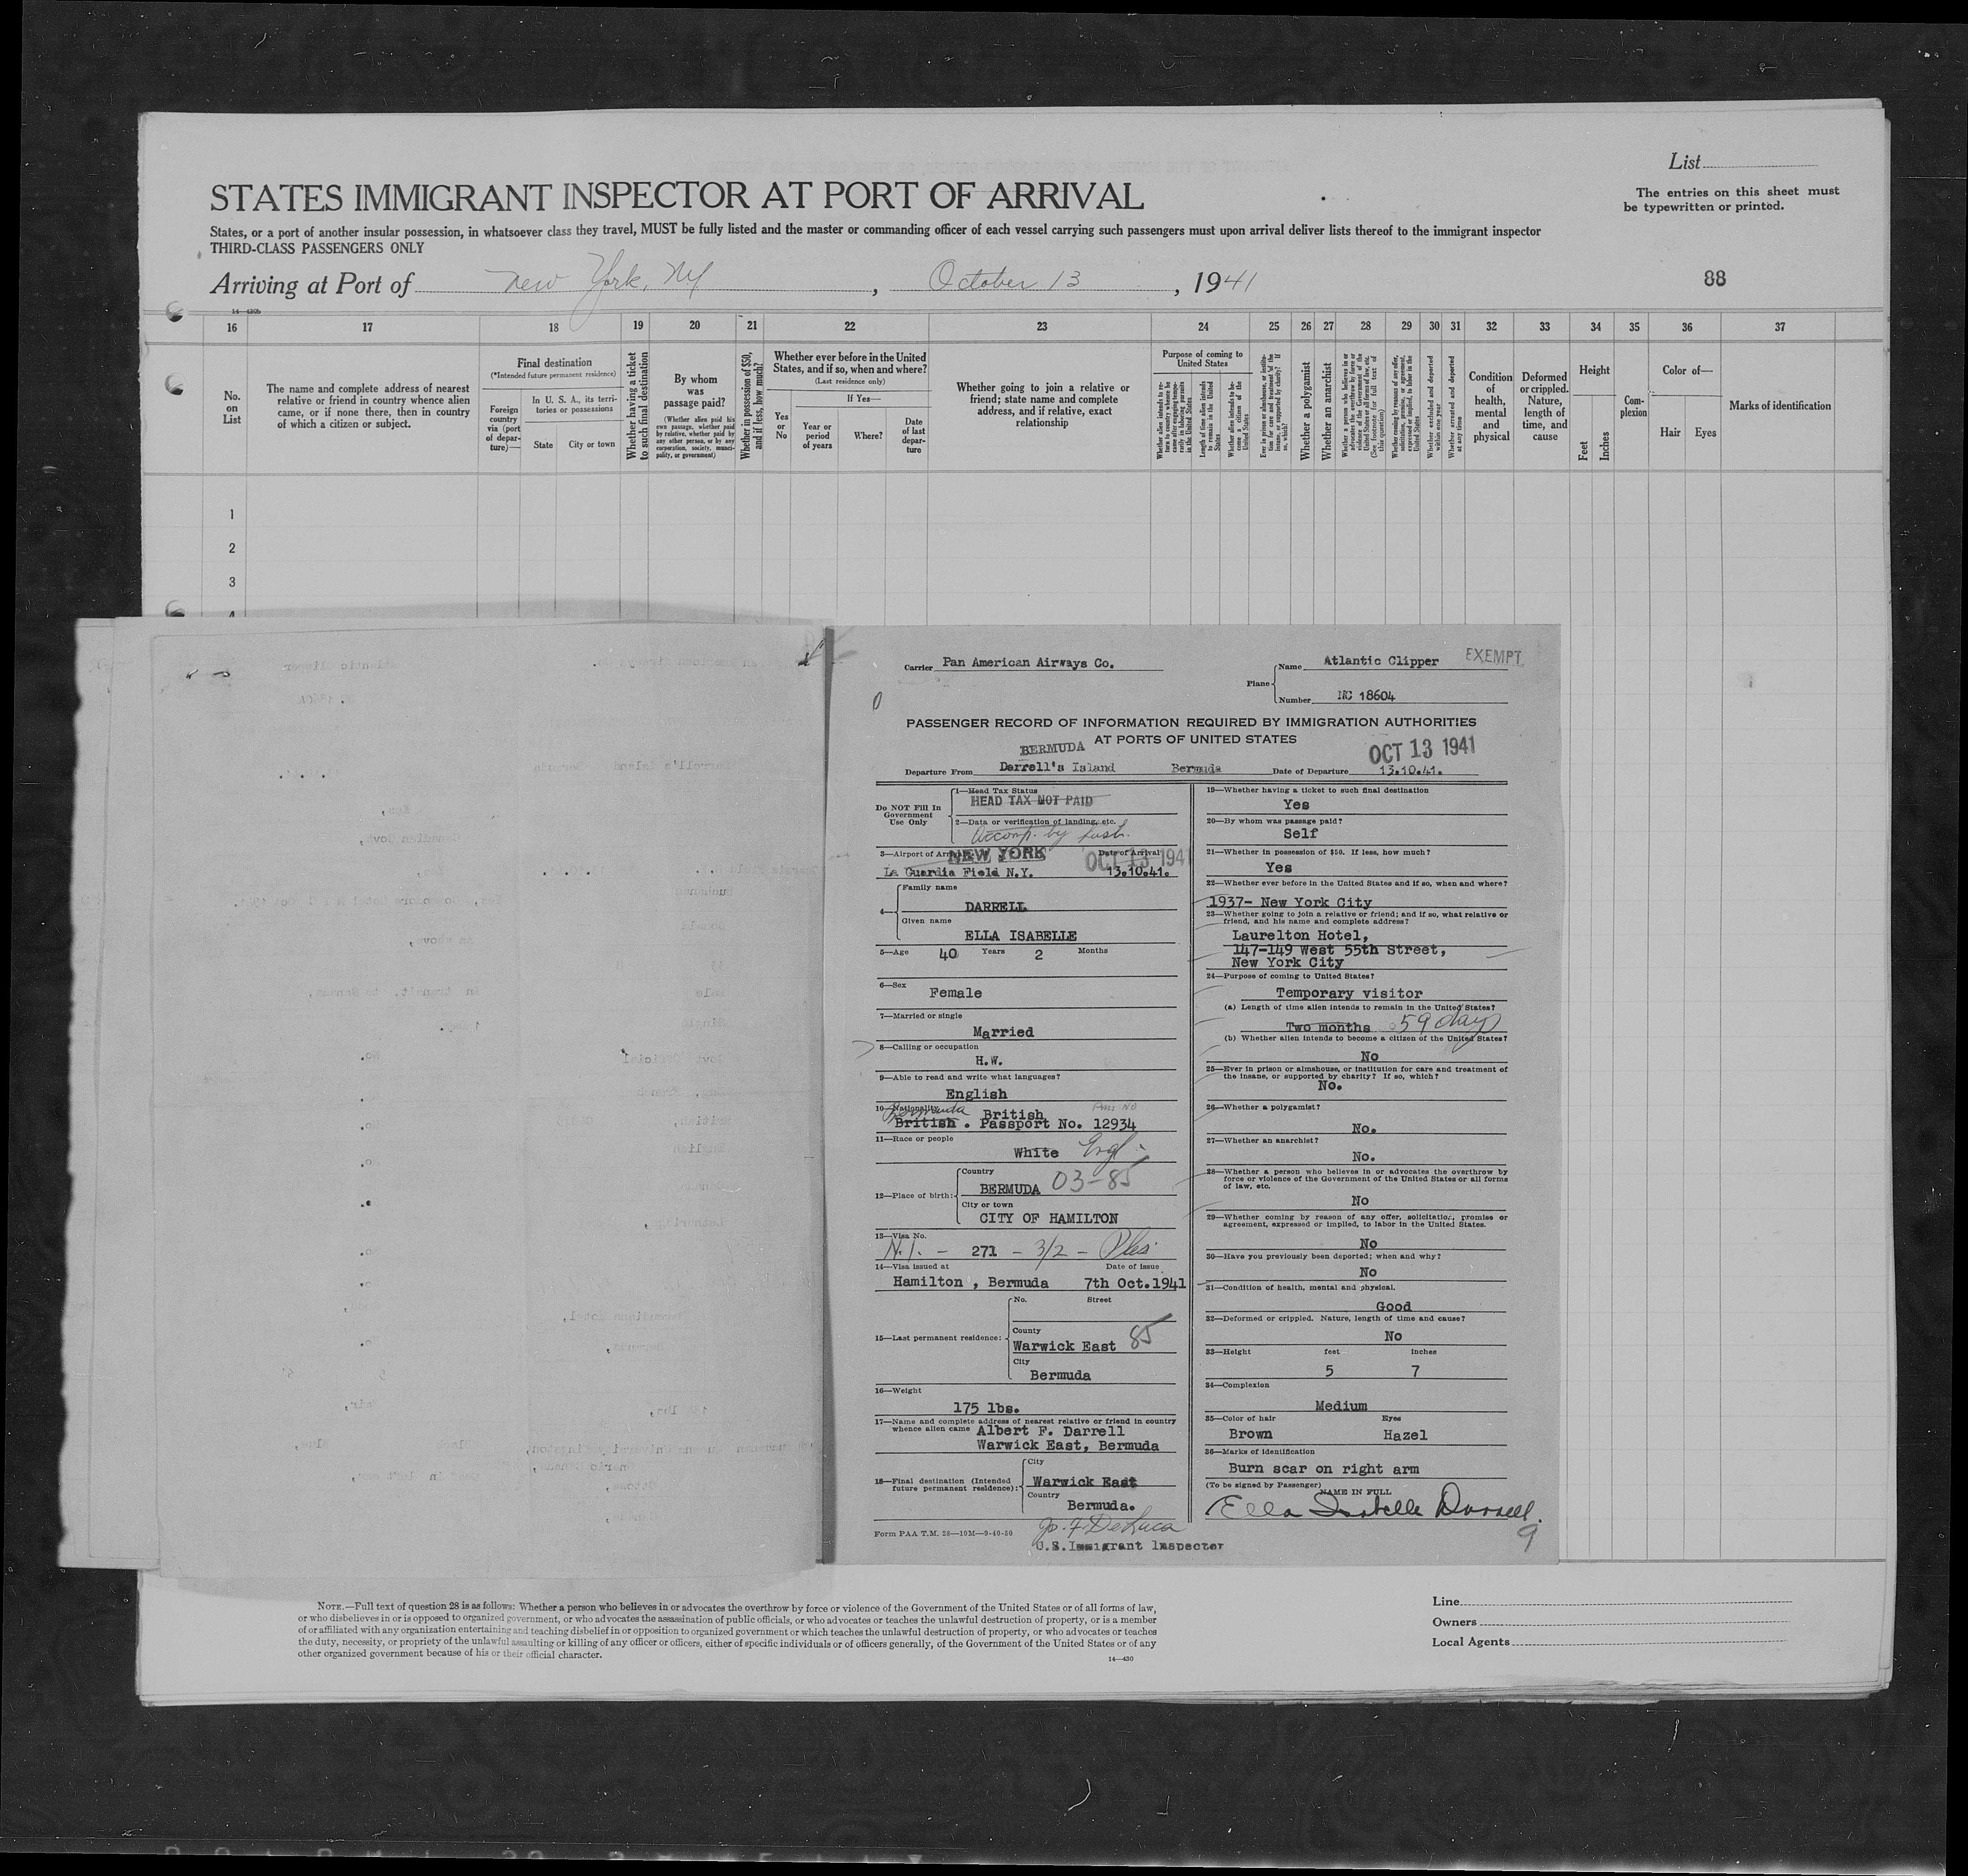 List
STATES IMMIGRANT INSPECTOR AT PORT OF ARRIVAL
The entries on this sheet must
be typewritten or printed.
States, or a port of another insular possession, in whatsoever class they travel, MUST be fully listed and the master or commanding officer of each vessel carrying such passengers must upon arrival deliver lists thereof to the immigrant inspector
THIRD-CLASS PASSENGERS ONLY
Arriving at Port of New York, NY, October 13, 1941
88
16 17 18 19 20 21 22 23 24 25 26 27 28 29 30 31 32 33 34 35 36 37
No. on List
The name and complete address of nearest relative or friend in country whence alien came, or if none there, then in country of which a citizen or subject.
Final destination
(*Intended future permanent residence)
Foreign country via (port of departure)—
In U. S. A., its territories or possessions
State
City or town
Whether having a ticket to such final destination
By whom was passage paid?
(Whether alien paid his own passage, whether paid by relative, whether paid by any other person, or by any corporation, society, municipality, or government)
Whether in possession of $50, and if less, how much?
Whether ever before in the United States, and if so, when and where?
(Last residence only)
Yes or No
If Yes—
Year or period of years
Where?
Date of last departure
Whether going to join a relative or friend; state name and complete address, and if relative, exact relationship
Purpose of coming to United States
Length of time alien intends to remain in the United States
Whether alien intends to become a citizen of the United States
Whether a polygamist
Whether an anarchist
Whether excluded and deported within one year
Whether arrested and deported at any time
Condition of health, mental and physical
Deformed or crippled. Nature, length of time, and cause
Height
Feet
Inches
Complexion
Color of—
Hair
Eyes
Marks of identification
1
2
3
4
Carrier Pan American Airways Co.
Plane
Name Atlantic Clipper
EXEMPT
Number NC 18604
PASSENGER RECORD OF INFORMATION REQUIRED BY IMMIGRATION AUTHORITIES
AT PORTS OF UNITED STATES
BERMUDA
OCT 13 1941
Departure From Darrell's Island Bermuda Date of Departure 13.10.41.
Do NOT Fill In Government Use Only
1—Head Tax Status
HEAD TAX NOT PAID
2—Data or verification of landing, etc.
Accomp. by husb.
3—Airport of Arrival NEW YORK Date of Arrival OCT 13 1941
La Guardia Field N.Y. 13.10.41.
4—
Family name
DARRELL
Given name
ELLA ISABELLE
5—Age 40 Years 2 Months
6—Sex
Female
7—Married or single
Married
8—Calling or occupation
H.W.
9—Able to read and write what languages?
English
10—Nationality
Bermuda British
British . Passport No. 12934
11—Race or people
White Engl
12—Place of birth:
Country
BERMUDA 03-85
City or town
CITY OF HAMILTON
13—Visa No.
N.I. - 271 - 3/2 -
14—Visa issued at Date of issue
Hamilton , Bermuda 7th Oct.1941
15—Last permanent residence:
No. Street
County
Warwick East 85
City
Bermuda
16—Weight
175 lbs.
17—Name and complete address of nearest relative or friend in country
whence alien came Albert F. Darrell
Warwick East, Bermuda
18—Final destination (Intended future permanent residence):
City
Warwick East
Country
Bermuda.
Form PAA T.M. 28—10M—9-40-50
Jo. F. DeLuca
U.S.Immigrant Inspector
19—Whether having a ticket to such final destination
Yes
20—By whom was passage paid?
Self
21—Whether in possession of $50. If less, how much?
Yes
22—Whether ever before in the United States and if so, when and where?
1937- New York City
23—Whether going to join a relative or friend; and if so, what relative or
friend, and his name and complete address?
Laurelton Hotel,
147-149 West 55th Street,
New York City
24—Purpose of coming to United States?
Temporary visitor
(a) Length of time alien intends to remain in the United States?
Two months 59 days
(b) Whether alien intends to become a citizen of the United States?
No
25—Ever in prison or almshouse, or institution for care and treatment of
the insane, or supported by charity? If so, which?
No.
26—Whether a polygamist?
No.
27—Whether an anarchist?
No.
28—Whether a person who believes in or advocates the overthrow by
force or violence of the Government of the United States or all forms
of law, etc.
No
29—Whether coming by reason of any offer, solicitation, promise or
agreement, expressed or implied, to labor in the United States.
No
30—Have you previously been deported; when and why?
No
31—Condition of health, mental and physical.
Good
32—Deformed or crippled. Nature, length of time and cause?
No
33—Height feet inches
5 7
34—Complexion
Medium
35—Color of hair Eyes
Brown Hazel
36—Marks of identification
Burn scar on right arm
(To be signed by Passenger)
NAME IN FULL
Ella Isabelle Darrell.
9
NOTE.—Full text of question 28 is as follows: Whether a person who believes in or advocates the overthrow by force or violence of the Government of the United States or of all forms of law,
or who disbelieves in or is opposed to organized government, or who advocates the assassination of public officials, or who advocates or teaches the unlawful destruction of property, or is a member
of or affiliated with any organization entertaining and teaching disbelief in or opposition to organized government or which teaches the unlawful destruction of property, or who advocates or teaches
the duty, necessity, or propriety of the unlawful assaulting or killing of any officer or officers, either of specific individuals or of officers generally, of the Government of the United States or of any
other organized government because of his or their official character.
14—430
Line
Owners
Local Agents